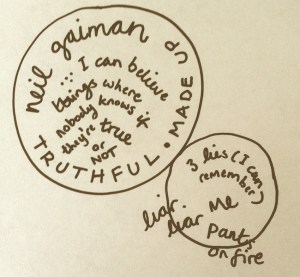 neil gaiman
... I can believe
things where
nobody knows if
they're true
or NOT
TRUTHFUL • MADE UP
3 lies (I can
remember)
Me
liar
liar
Pants
on fire